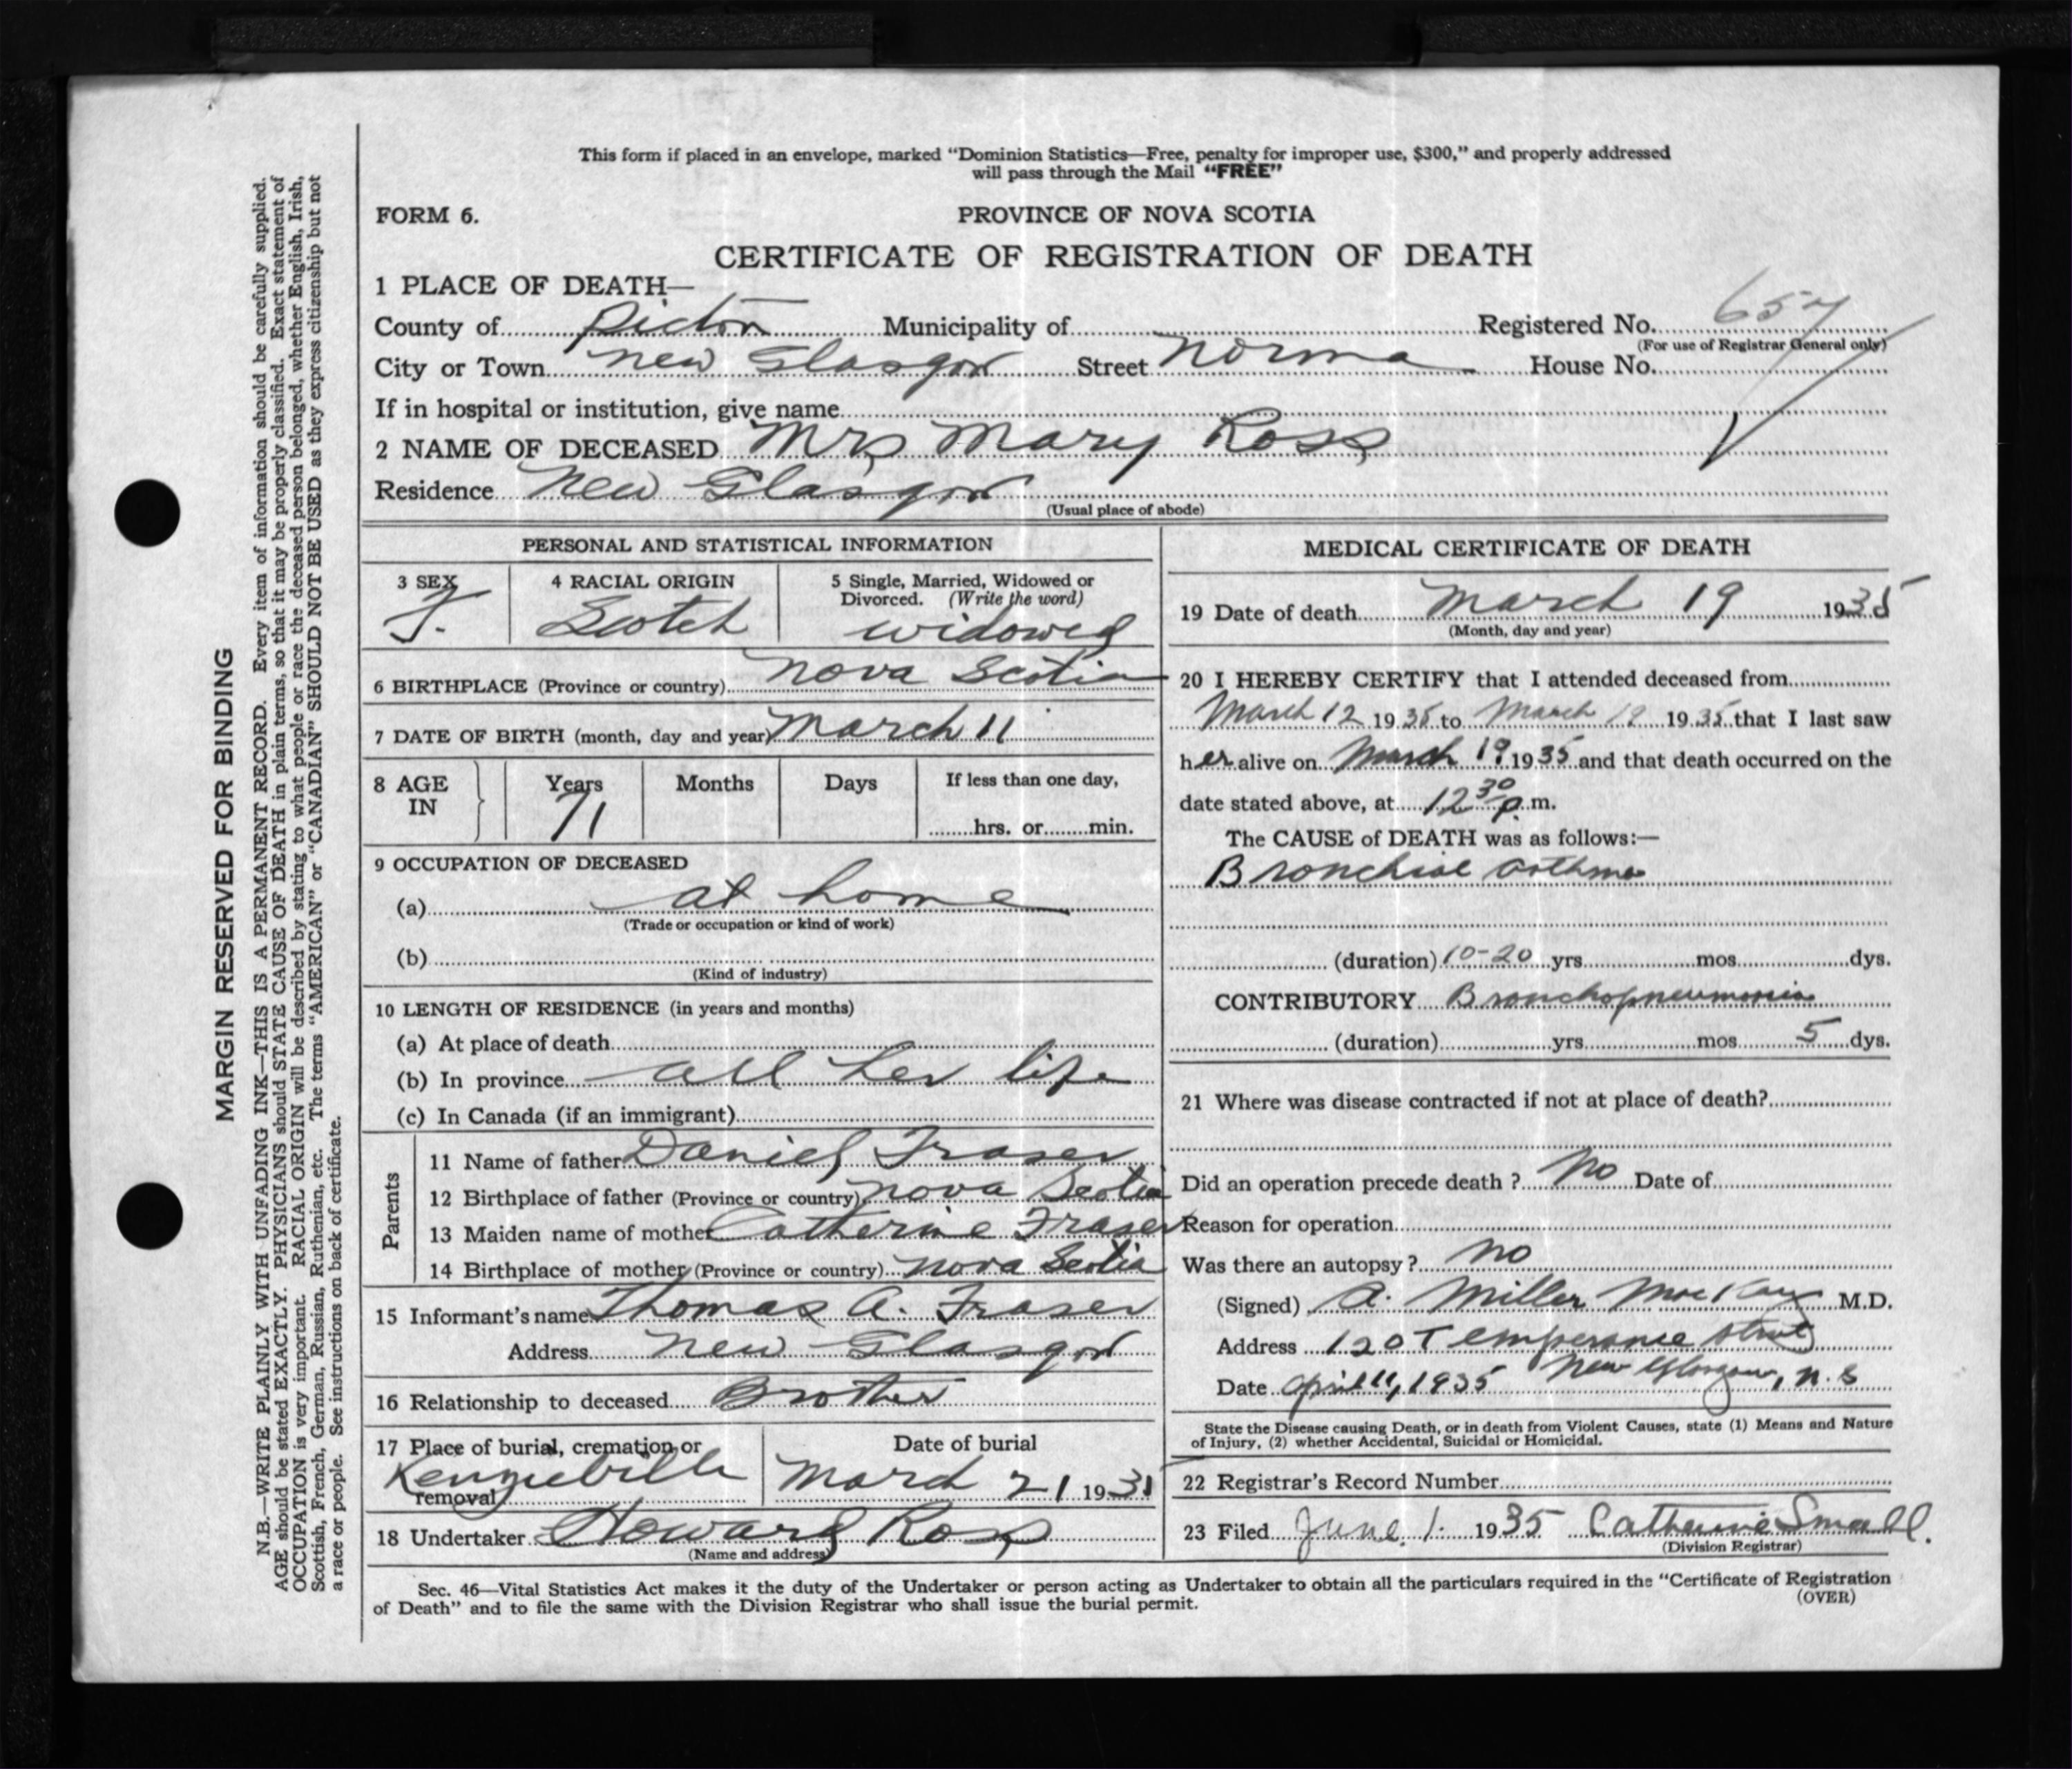 This form if placed in an envelope, marked “Dominion Statistics—Free, penalty for improper use, $300,” and properly addressed
will pass through the Mail “FREE”
FORM 6.
PROVINCE OF NOVA SCOTIA
CERTIFICATE OF REGISTRATION OF DEATH
1 PLACE OF DEATH—
County of Pictou Municipality of Registered No. 657
(For use of Registrar General only)
City or Town New Glasgow Street Norma House No.
If in hospital or institution, give name
2 NAME OF DECEASED Mrs Mary Ross
Residence New Glasgow
(Usual place of abode)
PERSONAL AND STATISTICAL INFORMATION
3 SEX 4 RACIAL ORIGIN 5 Single, Married, Widowed or
Divorced. (Write the word)
F. Scotch widowed
6 BIRTHPLACE (Province or country) Nova Scotia
7 DATE OF BIRTH (month, day and year) March 11
8 AGE IN Years Months Days If less than one day,
71 hrs. or min.
9 OCCUPATION OF DECEASED
(a) at home
(Trade or occupation or kind of work)
(b)
(Kind of industry)
10 LENGTH OF RESIDENCE (in years and months)
(a) At place of death
(b) In province all her life
(c) In Canada (if an immigrant)
Parents
11 Name of father Daniel Fraser
12 Birthplace of father (Province or country) Nova Scotia
13 Maiden name of mother Catherine Fraser
14 Birthplace of mother (Province or country) Nova Scotia
15 Informant's name Thomas A. Fraser
Address New Glasgow
16 Relationship to deceased Brother
17 Place of burial, cremation or removal Date of burial
Kenzieville March 21 1935
18 Undertaker Howard Ross
(Name and address)
MEDICAL CERTIFICATE OF DEATH
19 Date of death March 19 1935
(Month, day and year)
20 I HEREBY CERTIFY that I attended deceased from
March 12 1935 to March 19 1935 that I last saw
her alive on March 19 1935 and that death occurred on the
date stated above, at 12 30 p.m.
The CAUSE of DEATH was as follows:—
Bronchial asthma
(duration) 10-20 yrs mos dys.
CONTRIBUTORY Bronchopneumonia
(duration) yrs mos 5 dys.
21 Where was disease contracted if not at place of death?
Did an operation precede death ? No Date of
Reason for operation
Was there an autopsy ? No
(Signed) A. Miller MacKay M.D.
Address 120 Temperance Street
New Glasgow, N.S
Date April 11, 1935
State the Disease causing Death, or in death from Violent Causes, state (1) Means and Nature
of Injury, (2) whether Accidental, Suicidal or Homicidal.
22 Registrar's Record Number
23 Filed June 1. 1935 Catherine Small.
(Division Registrar)
Sec. 46—Vital Statistics Act makes it the duty of the Undertaker or person acting as Undertaker to obtain all the particulars required in the “Certificate of Registration
of Death” and to file the same with the Division Registrar who shall issue the burial permit.
(OVER)
MARGIN RESERVED FOR BINDING
N.B.—WRITE PLAINLY WITH UNFADING INK—THIS IS A PERMANENT RECORD. Every item of information should be carefully supplied.
AGE should be stated EXACTLY. PHYSICIANS should STATE CAUSE OF DEATH in plain terms, so that it may be properly classified. Exact statement of
OCCUPATION is very important. RACIAL ORIGIN will be described by stating to what people or race the deceased person belonged, whether English, Irish,
Scottish, French, German, Russian, Ruthenian, etc. The terms “AMERICAN” or “CANADIAN” SHOULD NOT BE USED as they express citizenship but not
a race or people. See instructions on back of certificate.